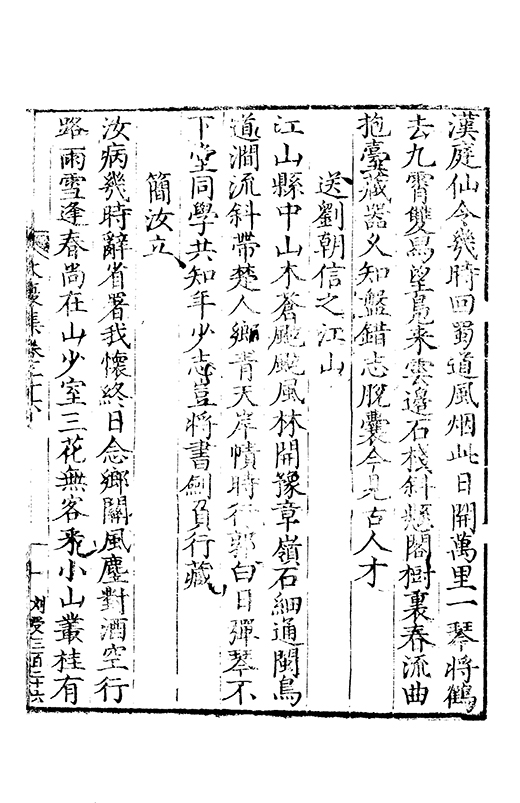 漢庭仙令幾時回蜀道風烟此日開萬里一琴將鶴
去九霄雙舄望鳧来雲邊石棧斜懸閣樹裏春流曲
抱臺藏器乆知盤錯志脫囊今見古人才
送劉朝信之江山
江山縣中山木蒼颼颼風林開豫章嶺石細通閩鳥
道澗流斜帶楚人鄉青天岸幘時行郭白日彈琴不
下堂同學共知年少志豈將書劍負行藏
簡汝立
汝病幾時辭省署我懷終日念鄉關風塵對酒空行
路雨雪逢春尚在山少室三花無客采小山叢桂有
集卷之十六
一
刘受二百二十六